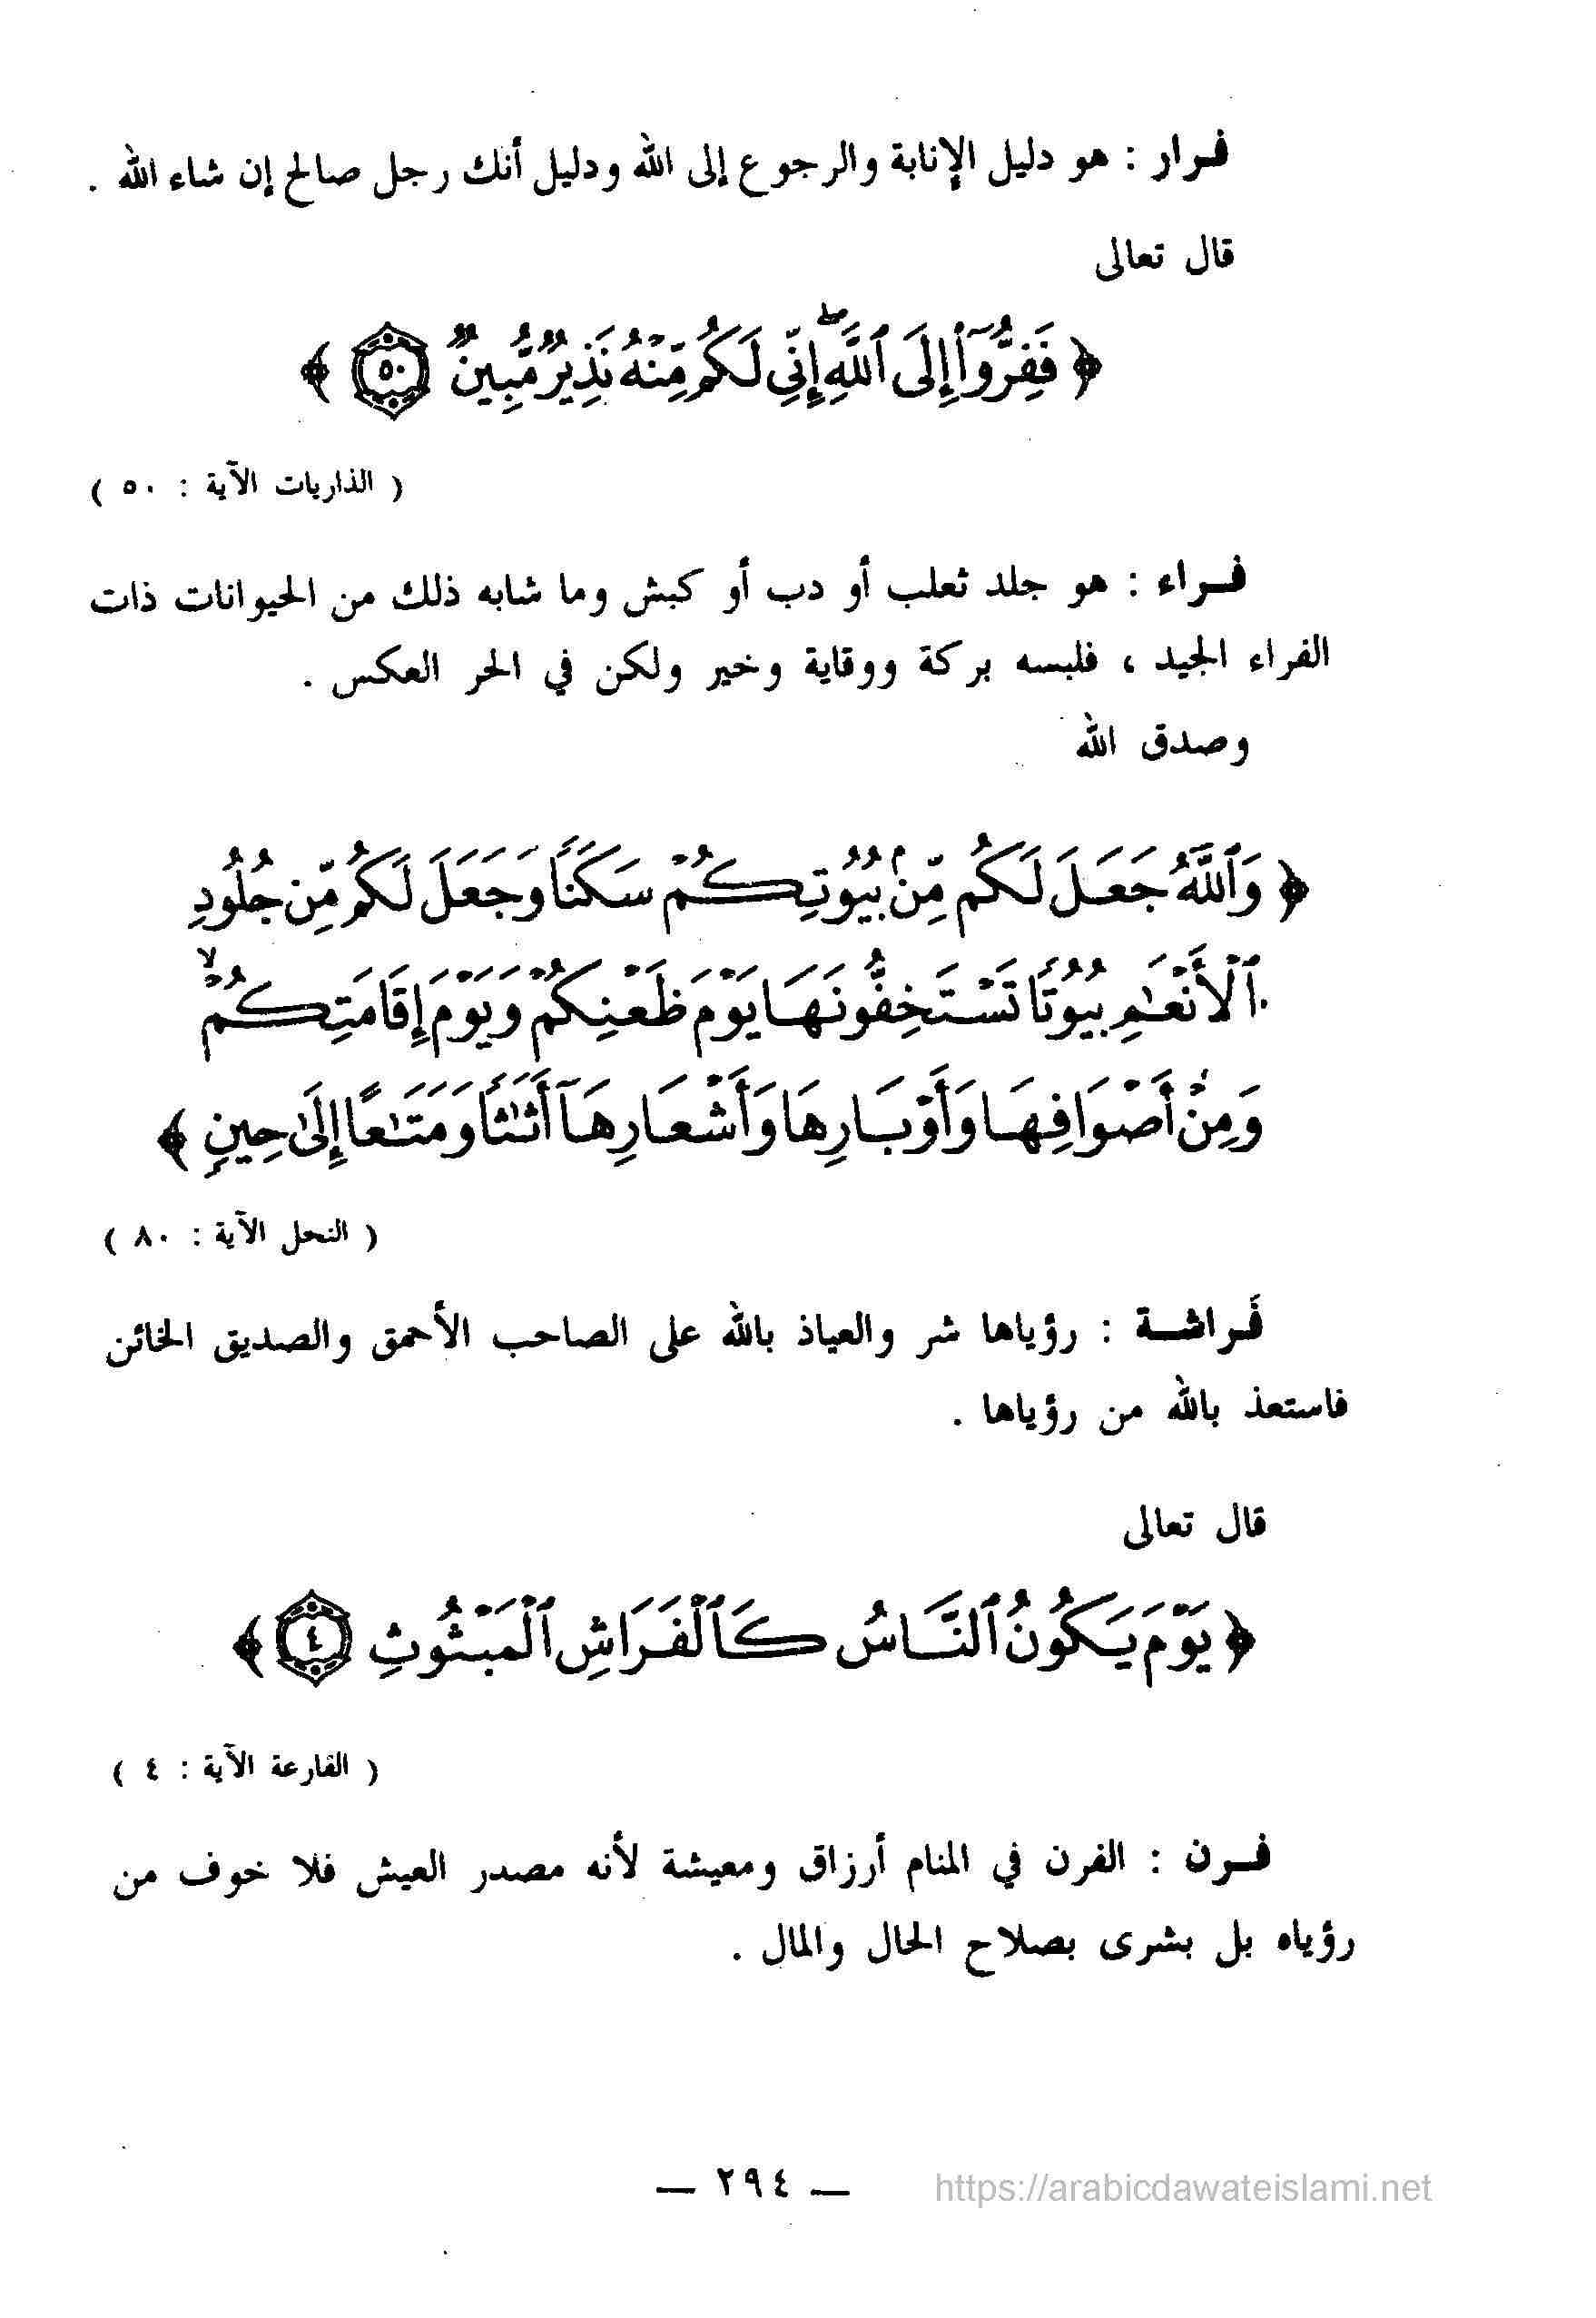 فرار : هو دليل الإنابة والرجوع إلى الله ودليل أنك رجل صالح إن شاء الله .
قال تعالى
﴿ فَفِرُّوٓا۟ إِلَى ٱللَّهِ ۖ إِنِّى لَكُم مِّنْهُ نَذِيرٌ مُّبِينٌ ٥٠ ﴾
( الذاريات الآية : ٥٠ )
فراء : هو جلد ثعلب أو دب أو كبش وما شابه ذلك من الحيوانات ذات
الفراء الجيد ، فلبسه بركة ووقاية وخير ولكن في الحر العكس .
وصدق الله
﴿ وَٱللَّهُ جَعَلَ لَكُم مِّنۢ بُيُوتِكُمْ سَكَنًا وَجَعَلَ لَكُم مِّن جُلُودِ
ٱلْأَنْعَٰمِ بُيُوتًا تَسْتَخِفُّونَهَا يَوْمَ ظَعْنِكُمْ وَيَوْمَ إِقَامَتِكُمْ ۙ
وَمِنْ أَصْوَافِهَا وَأَوْبَارِهَا وَأَشْعَارِهَآ أَثَٰثًا وَمَتَٰعًا إِلَىٰ حِينٍ ﴾
( النحل الآية : ٨٠ )
فَراشة : رؤياها شر والعياذ بالله على الصاحب الأحمق والصديق الخائن
فاستعذ بالله من رؤياها .
قال تعالى
﴿ يَوْمَ يَكُونُ ٱلنَّاسُ كَٱلْفَرَاشِ ٱلْمَبْثُوثِ ٤ ﴾
( القارعة الآية : ٤ )
فرن : الفرن في المنام أرزاق ومعيشة لأنه مصدر العيش فلا خوف من
رؤياه بل بشرى بصلاح الحال والمال .
— ٢٩٤ —
https://arabicdawateislami.net